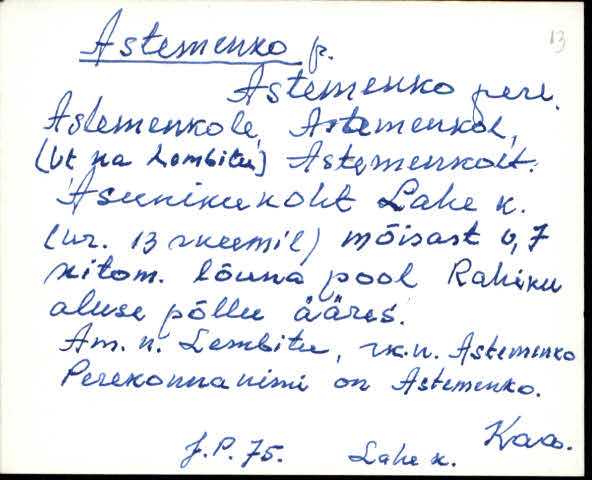 13
Astemenko p.
Astemenko pere.
Astemenkole, Astemenkol,
(vt ka Lembitu) Astemenkolt.
Asunikukoht Lahe k.
(nr. 13 skeemil) mõisast 0,7
kilom. lõuna pool Rahiku
aluse põllu ääres.
Am. n. Lembitu, rk.n. Astemenko
Perekonnanimi on Astemenko.
Kaa.
J.P. 75. Lahe k.